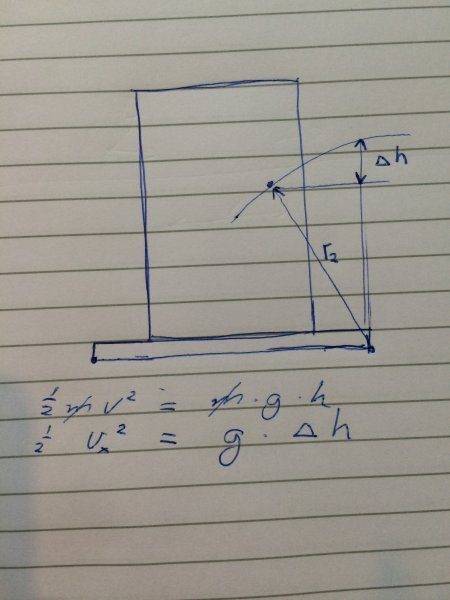 Δh
r₂
½ m v² = m · g · h
½ vₓ² = g · Δh